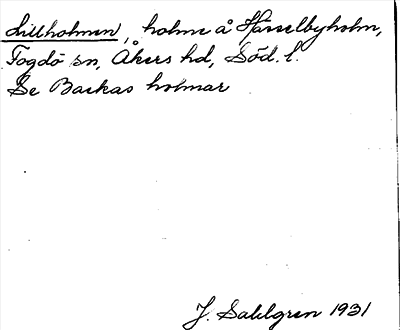 Lillholmen, holme å Hässelbyholm,
Fogdö sn, Åkers hd, Söd. l.
Se Backas holmar
J. Sahlgren 1931